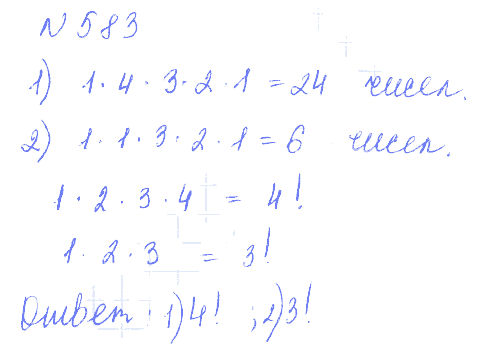 N 583
1) 1 · 4 · 3 · 2 · 1 = 24 чисел.
2) 1 · 1 · 3 · 2 · 1 = 6 чисел.
1 · 2 · 3 · 4 = 4!
1 · 2 · 3 = 3!
Ответ: 1) 4! ; 2) 3!